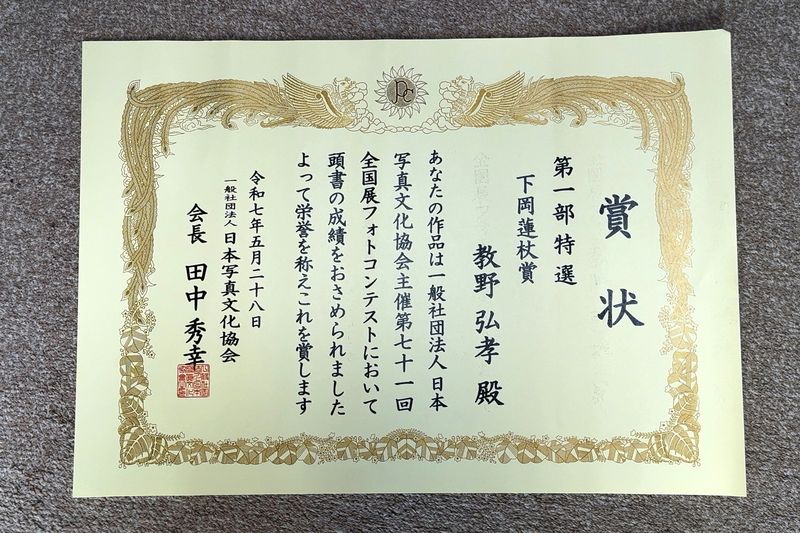 賞状
第一部特選
下岡蓮杖賞
教野弘孝殿
あなたの作品は一般社団法人日本
写真文化協会主催第七十一回
全国展フォトコンテストにおいて
頭書の成績をおさめられました
よって栄誉を称えこれを賞します
令和七年五月二十八日
一般社団法人日本写真文化協会
会長 田中秀幸